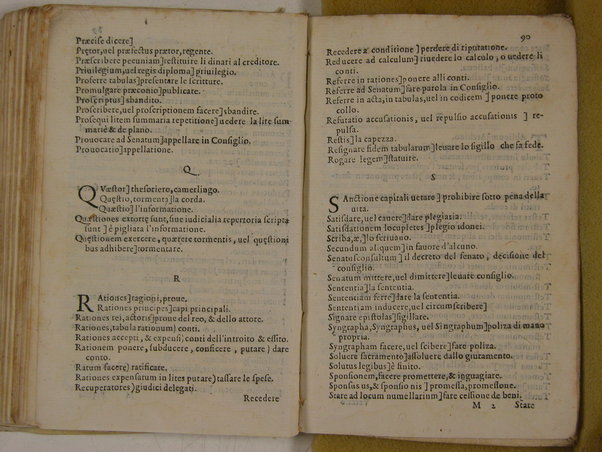 Præcise dicere]
Prętor, uel præfectus prætor, regente.
Præscribere pecuniam] restituire li dinari al creditore.
Priuilegium, uel regis diploma] priuilegio.
Proferre tabulas] presentare le scritture.
Promulgare præconio] publicate.
Proscriptus] sbandito.
Proscribere, uel proscriptionem facere] sbandire.
Prosequi litem summaria repetitione] uedere la lite sum
marie & de plano.
Prouocare ad Senatum] appellare in Consiglio.
Prouocatio] appellatione.
Q
QVæstor] thesoriero, camerlingo.
Quęstio, tormenta] la corda.
Quæstio] l'informatione.
Quæstiones extortę sunt, siue iudicialia repertoria scripta
sunt] è pigliata l'informatione.
Quęstionem exercere, quærere tormentis, uel quęstioni
bus adhibere] tormentare.
R
RAtiones] ragioni, proue.
Rationes principes] capi principali.
Rationes rei, actoris] proue del reo, & dello attore.
Rationes, tabula rationum) conti.
Rationes accepti, & expensi) conti dell'introito & essito.
Rationem ponere, subducere, conficere, putare) dare
conto.
Ratum facere) ratificare.
Rationes expensatum in lites putare) tassare le spese.
Recuperatores) giudici delegati.
Recedere
90
Recedere a conditione] perdere di riputatione.
Reducere ad calculum] riuedere lo calculo, o uedere li
conti.
Referre in rationes] ponere alli conti.
Referre ad Senatum] fare parola in Consiglio.
Referre in acta, in tabulas, uel in codicem] ponere proto
collo.
Refutatio accusationis, uel repulsio accusationis ] re-
pulsa.
Restis] la capezza.
Resignate fidem tabularum] leuare lo sigillo che fa fede.
Rogare legem] statuire.
S
SAnctione capitali uetare] prohibire sotto pena della
uita.
Satisdare, uel cauere] dare plegiaria.
Satisdationem locupletes] plegio idonei.
Scriba, æ,] lo scriuano.
Secundum aliquem] in fauore d'alcuno.
Senatusconsultum] il decreto del senato, decisione del
consiglio.
Senatum mittere, uel dimittere] leuare consiglio.
Sententia] la sententia.
Sententiam ferre] dare la sententia.
Sententiam inducere, uel circumscribere]
Signare epistolas] sigillare.
Syngrapha, Syngraphus, uel Singraphum] poliza di mano
propria.
Syngrapham facere, uel scibere] fare poliza.
Soluere sacramento] assoluere dallo giuramento.
Solutus legibus] è finito.
Sponsionem, facere promettere, & inguagiare.
Sponsus us, & sponsio nis ] promessa, promessone.
State ad locum numellarium] fare cessione de beni.
M 2 State